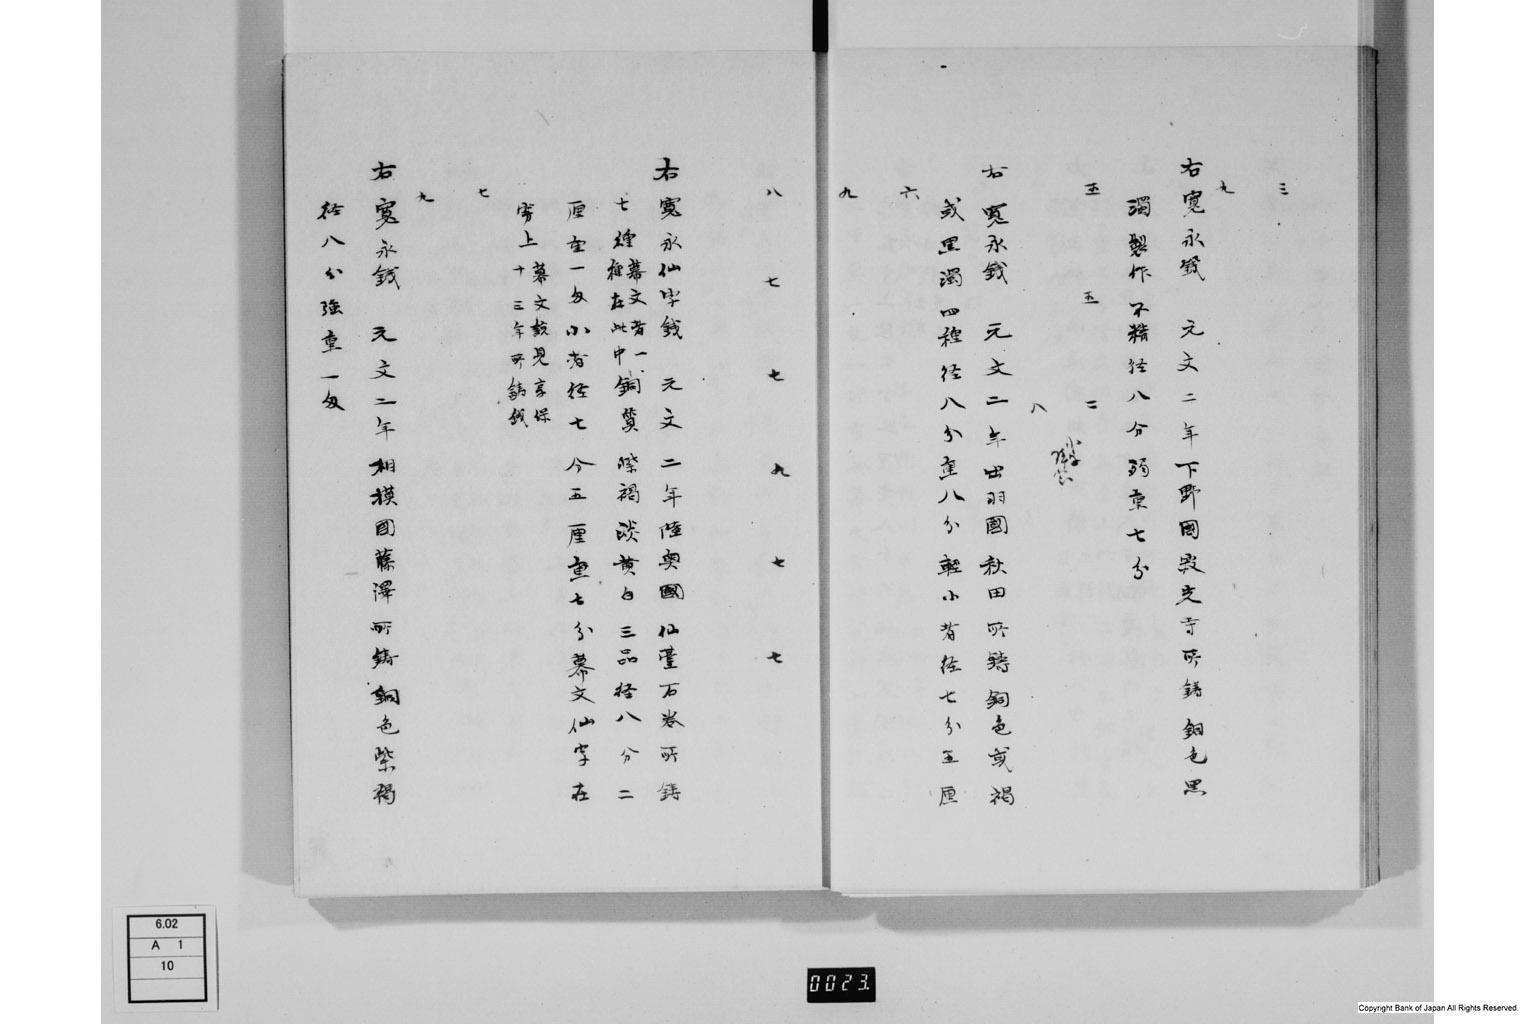 三
九
右寛永錢 元文二年下野國　光寺所鑄 銅色黒
濁製作不精径八分弱重七分
五 五 二
小字
八
右寛永錢 元文二年出羽國秋田所鑄銅色或褐
或黒濁四種径八分重八分輕小者径七分五厘
六
九
八 七 七 九 七 七
右寛永仙字錢 元文二年陸奥國仙臺石巻所鑄
七種幕文者一種在此中銅質紫褐淡黄白三品径八分二
厘重一匁小者径七分五厘重七分幕文仙字在
穿上幕文錢見享保十三年所鑄錢
七
九
右寛永錢 元文二年相摸國藤澤所鑄銅色紫褐
径八分強重一匁
6.02
A 1
10
0023.
Copyright Bank of Japan All Rights Reserved.